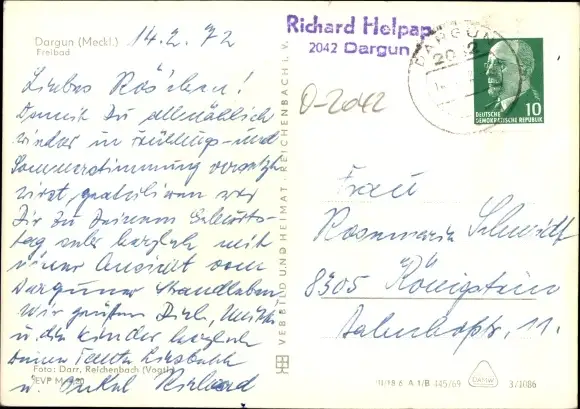 Dargun (Meckl.)
Freibad
14.2.72
Liebes Rös'chen!
Damit Du allmählich
wieder in Frühlings- und
Sommerstimmung versetzt
wirst, gratulieren wir
Dir zu Deinem Geburts-
tag sehr herzlich mit
einer Ansicht vom
Darguner Strandleben
Wir grüßen Dich,
u. die Kinder herzlich
Deine Tante Liesbeth
u. Onkel Richard
Foto: Darr, Reichenbach (Vogtl.)
EVP M
VEB BILD UND HEIMAT, REICHENBACH i. V.
Richard Helpap
2042 Dargun
O-2042
DARGUN
2042
10
DEUTSCHE
DEMOKRATISCHE REPUBLIK
Frau
Rosemarie Schmidt
8305 Königstein
Bahnhofstr. 11.
III/18/6 A 1/B 445/69
3/1086